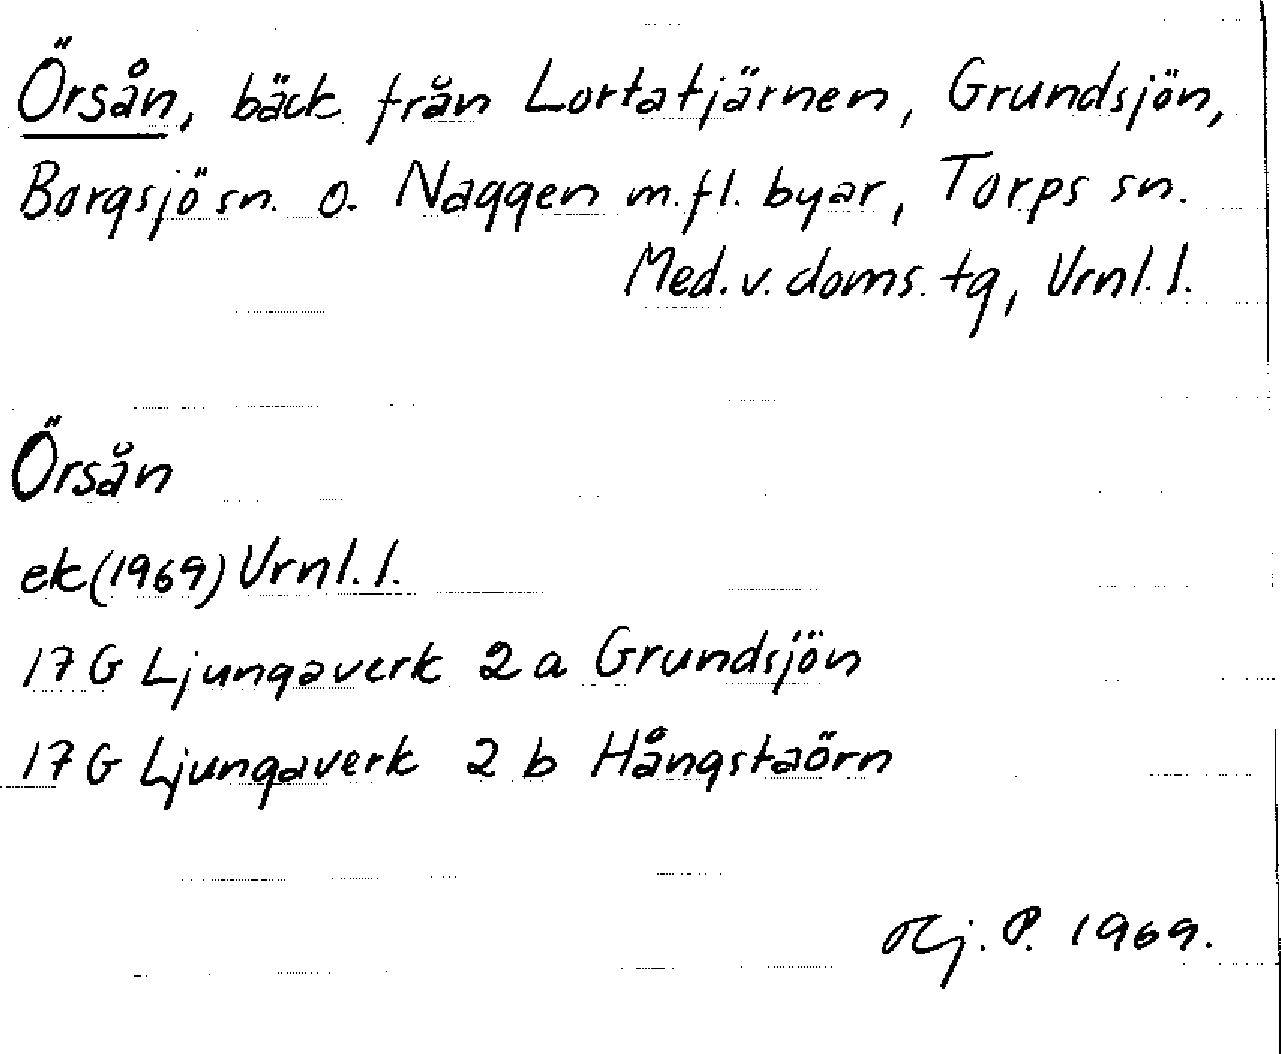 Örsån, bäck från Lortatjärnen, Grundsjön,
Borgsjö sn. o. Naggen m.fl. byar, Torps sn.
Med. v. doms. tg, Vrnl. l.
Örsån
ek (1969) Vrnl. l.
17 G Ljungaverk 2 a Grundsjön
17 G Ljungaverk 2 b Hångstaörn
Hj. P. 1969.